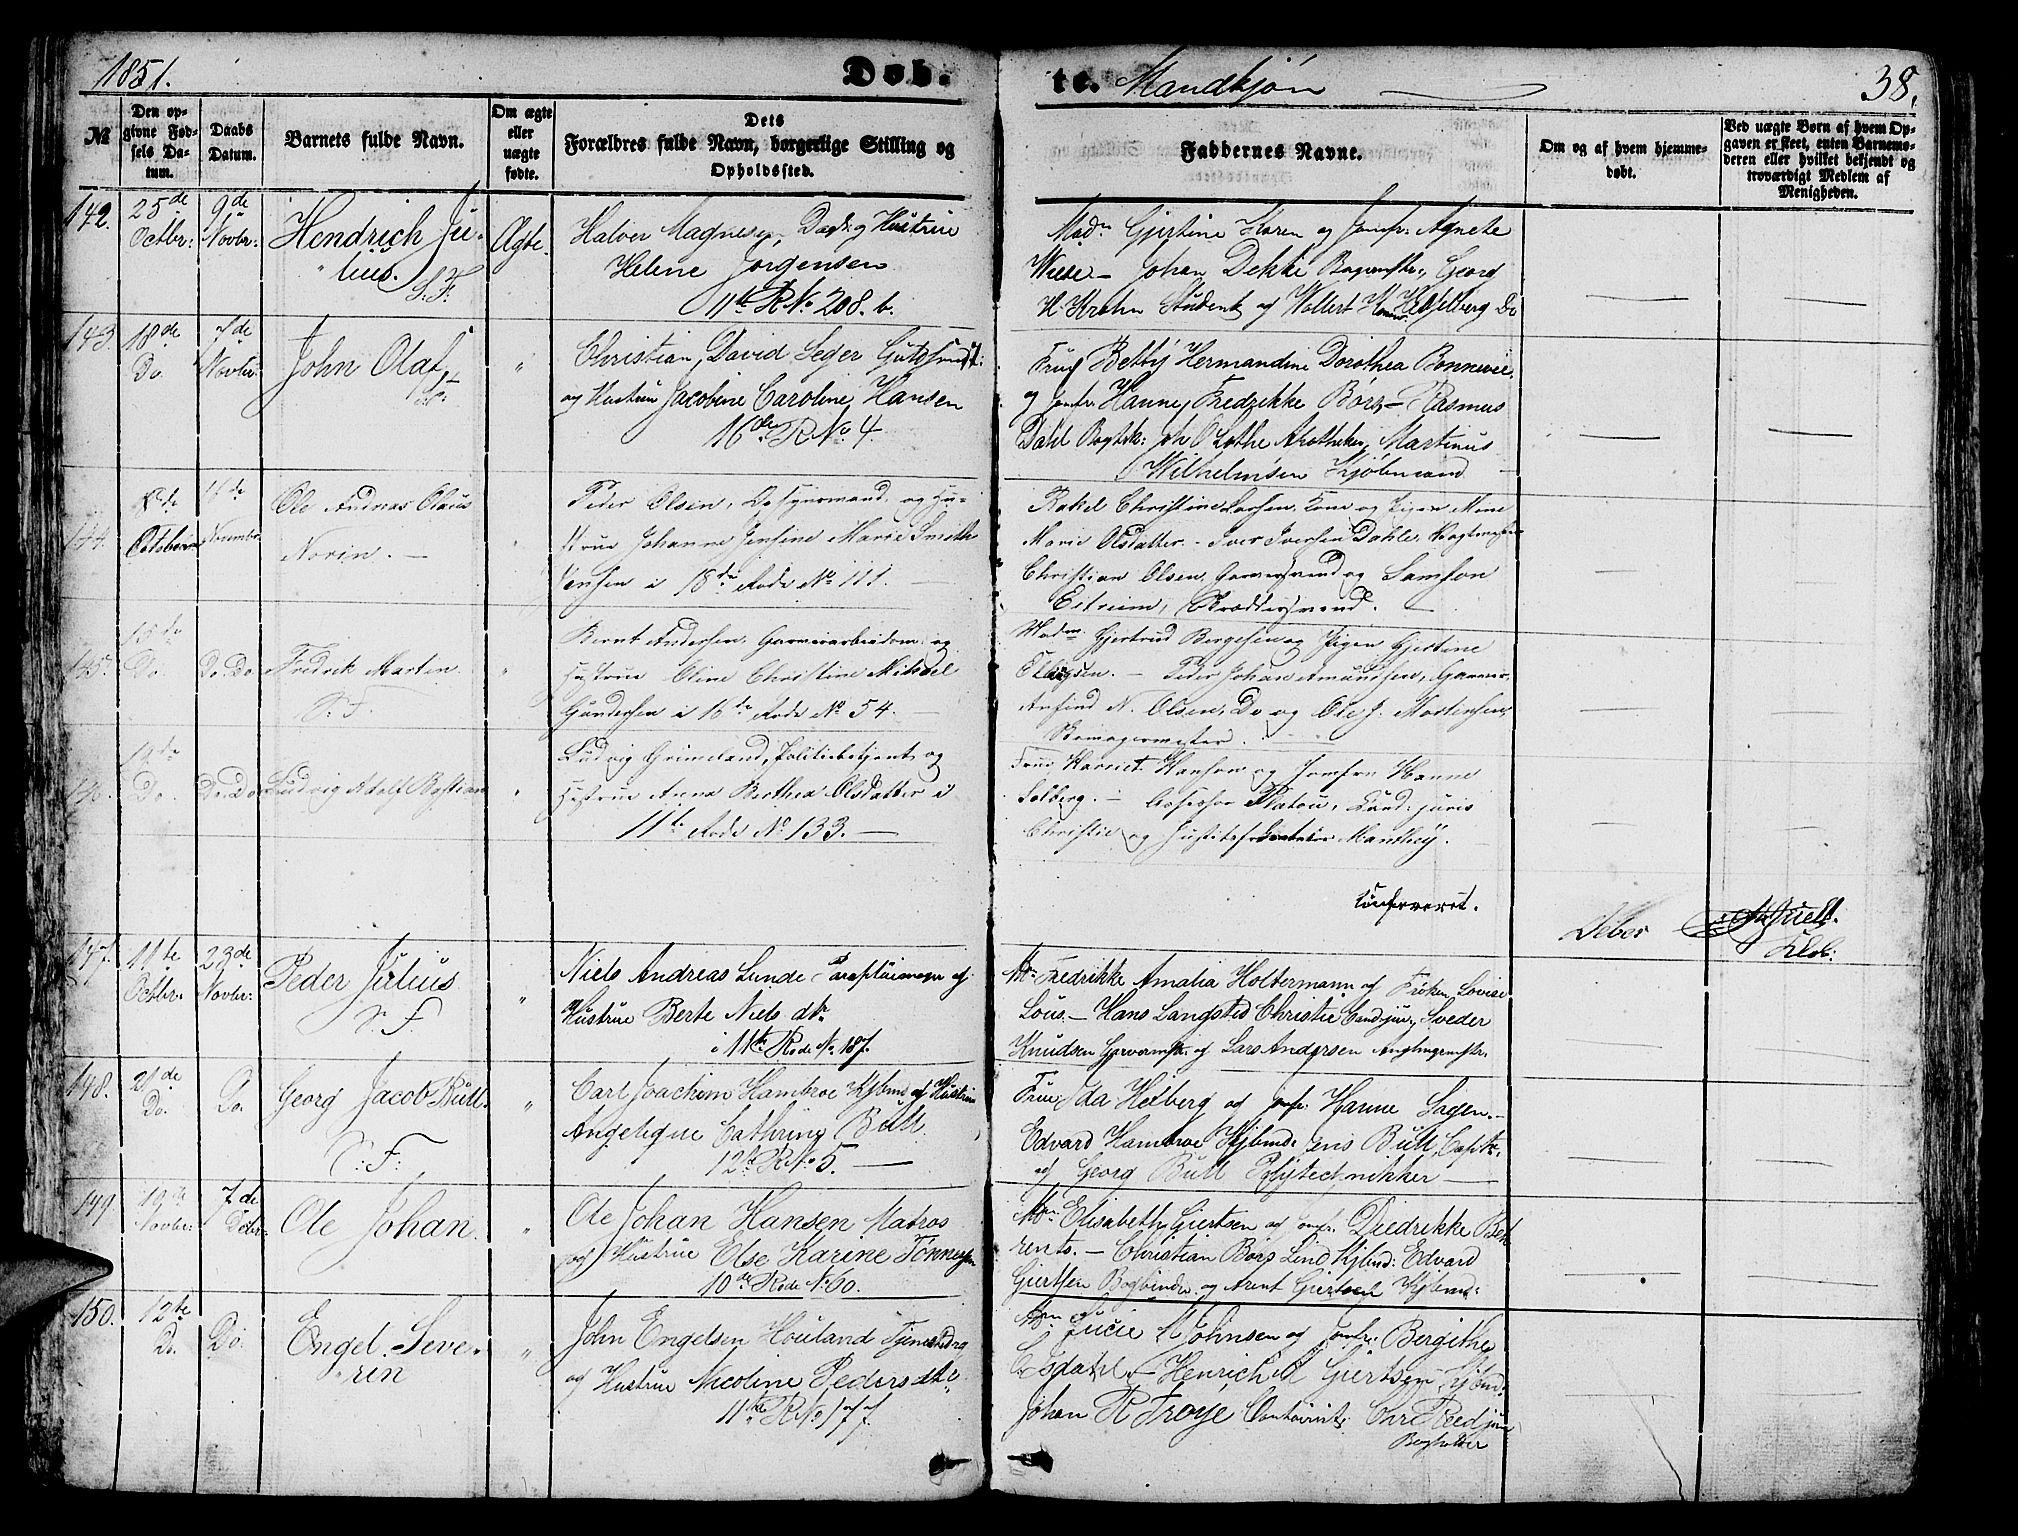 1851.
Døb.
te. Mandkjøn
38.
№
Den op-
givne Fød-
sels Da-
tum.
Daabs
Datum.
Barnets fulde Navn.
Om ægte
eller
uægte
fødte.
Dets
Forældres fulde Navn, borgerlige Stilling og
Opholdssted.
Faddernes Navne.
Om og af hvem hjemme-
døbt.
Ved uægte Børn af hvem Op-
gaven er skeet, enten Barnemo-
deren eller hvilket bekjendt og
troværdigt Medlem af
Menigheden.
142. 25de 9de
Octbr: Novbr:
Hendrich Ju-
lius. S.F:
Ægte
Halver Magnesen, Dagk: og Hustrue
Helene Jørgensen
11te R No 208. b.
Madm Gjertine Horen og Jomfr: Agnete
Wiese – Johan Dekke Bagermstr, Georg
H: Krohn Student og Wollert Hesselberg Do
143. 18de 7de
Do. Novbr:
John Olaf
"
Christian David Seger
og Hustrue Jacobine Caroline Hansen
16de R No 4.
Frue Betty Hermandine Dorothea Bonnevie
og Jomfr: Hanne Fredrikke Børs – Rasmus
Dahl Bogtr: Joh Lothe Apotheker, Martinus
Wilhelmsen Kjøbmand
144.
October
Ole Andreas Olaus
Norin. –
"
Peder Olsen, og Hu-
strue Johanne Jensine Marie Smith
Jensen i 18de Rode No 111. –
Rakel Christine Larsen, Kone og Pigen Mene
Marie Olsdatter. – Iver Iversen Dahle,
Christian Olsen, Garversvend og Samson
Eitreim, Skræddersvend. –
145. 15de
Do. Do. Do
Fredrik Martin
S: F.
"
Bernt Andersen, Garveriarbeidsm: og
Hustrue Oline Christine Mikael
Gundersen i 16de Rode No 54. –
Madm: Gjertrud Bergesen og Pigen Gjertine
Ellingsen. – Peder Johan Amundsen, Garver,
N. Olsen, Do og Ole J. Mortensen,
146. 19de
Do. Do. Do
Ludvig Adolf Bastian
"
Ludvig Grimeland, Politibetjent og
Hustrue Anna Berthea Olsdatter i
11te Rode No 133. –
Frue Harriet Hansen og Jomfru Hanne
Solberg. – Assessor Platou, Cand: juris
Christie og Manthey.
Confereret.
Deber
Klok:
147. 11te 23de
Octbr. Novbr:
Peder Julius
S. F.
"
Niels Andreas Lunde Paraplüimager og
Hustrue Berte Niels dtr
i 11te Rode No 187.
Fredrikke Amalia Holtermann og Frøken Lovise
Lous. – Hans Langsted Christie Cand: jur, Sveder
Knudsen Garvermstr. og Lars Andersen
148. 21de
Do. Do.
Georg Jacob Bull.
S: F:
"
Carl Joachim Hambroe Kjbmd og Hustrue
Angelique Cathrine Bull
12te R No 5. –
Frue Ida Heiberg og Jomfr: Hanne Sagen. –
Edvard Hambroe Kjbmd: Jens Bull, Capit:
og Georg Bull Polytechnikker –
149. 19de 7de
Novbr: Debr:
Ole Johan
"
Ole Johan Hansen Matros
og Hustrue Else Karine Tønnesen
10de Rode No 60.
Elisabeth Giertsen og Jomfr. Diedrikke Beh
rents. – Christian Børs Lind Kjbmd: Edvard
Giertsen Bogbinder og Arent Giertsen Kjbmd:
150. 12te
Do. Do.
Engel Seve-
rin
"
John Engelsen Houland Tjenestedrg
og Hustrue Nicoline Peders dtr
11te R No 177.
Lucie Johnsen og Jomfr. Bergithe
– Henrich Giertsen Kjbmd:
Johan R Troye Contoirist, Chr
Bogholder